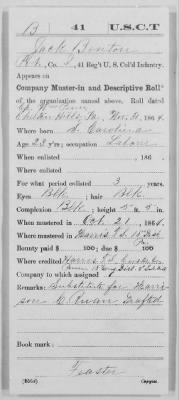 B 41 U.S.C.T
Jack Benton
Co. , 41 Reg't U. S. Col'd Infantry.
Appears on
Company Muster-in and Descriptive Roll*
of the organization named above. Roll dated
Camp Wm Penn
Chelten Hills, Pa, Nov. 30, 1864.
Where born S. Carolina
Age 23 y'rs; occupation Labor
When enlisted , 186 .
Where enlisted
For what period enlisted 3 years.
Eyes Blk ; hair Blk
Complexion Blk ; height 5 ft. in.
When mustered in Oct. 21, 1864.
Where mustered in Harris
Bounty paid $ 100; due $ 100
Where credited Harris
Company to which assigned
Remarks: Substitute for Harri-
son drafted
Book mark:
Feaster
Copyist.